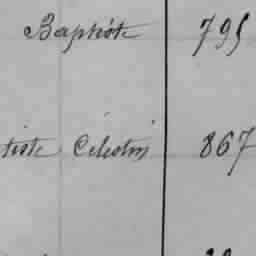 Baptiste 795
tiste Célestin 867